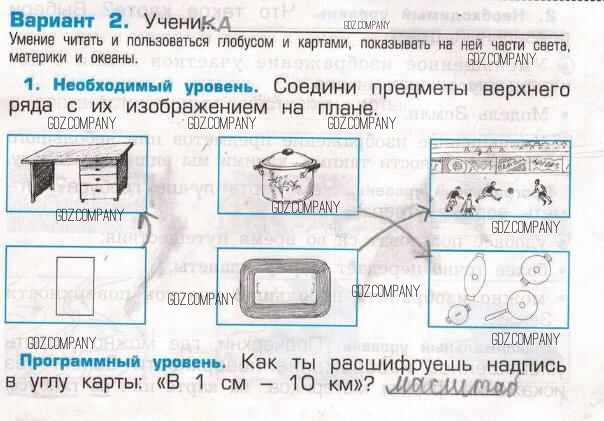 Вариант 2. Ученика GDZ.COMPANY
Умение читать и пользоваться глобусом и картами, показывать на ней части света,
материки и океаны. GDZ.COMPANY
1. Необходимый уровень. Соедини предметы верхнего
ряда с их изображением на плане.
GDZ.COMPANY GDZ.COMPANY GDZ.COMPANY GDZ.COMPANY
GDZ.COMPANY GDZ.COMPANY
GDZ.COMPANY
GDZ.COMPANY GDZ.COMPANY
GDZ.COMPANY GDZ.COMPANY
GDZ.COMPANY GDZ.COMPANY
Программный уровень. Как ты расшифруешь надпись
в углу карты: «В 1 см – 10 км»? масштаб